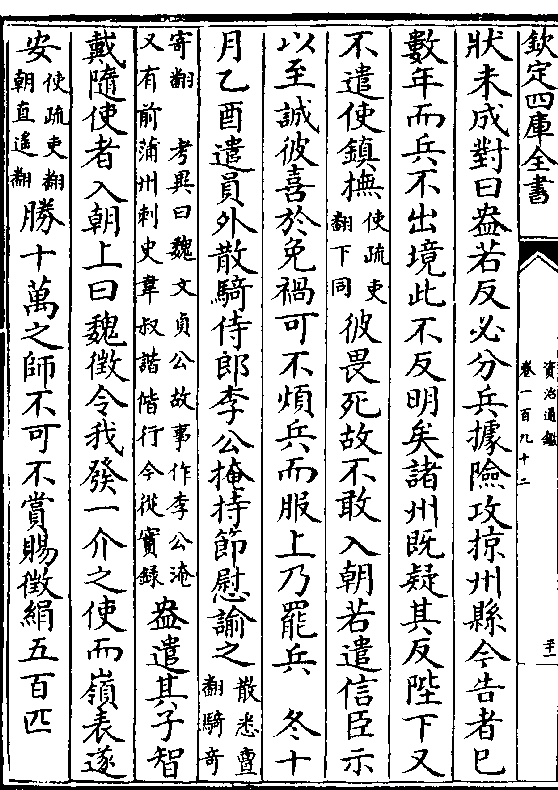 欽定四庫全書
資治通鑑
卷一百九十二
狀未成對曰盎若反必分兵據險攻掠州縣今告者已
數年而兵不出境此不反明矣諸州既疑其反陛下又
不遣使鎮撫使疏吏翻下同彼畏死故不敢入朝若遣信臣示
以至誠彼喜於免禍可不煩兵而服上乃罷兵 冬十
月乙酉遣員外散騎侍郎李公掩持節慰諭之散悉亶翻騎奇
寄翻 考異曰魏文貞公故事作李公淹又有前蒲州刺史韋叔諧偕行今從實録盎遣其子智
戴隨使者入朝上曰魏徵令我發一介之使而嶺表遂
安使疏吏翻朝直遥翻勝十萬之師不可不賞賜徵絹五百匹